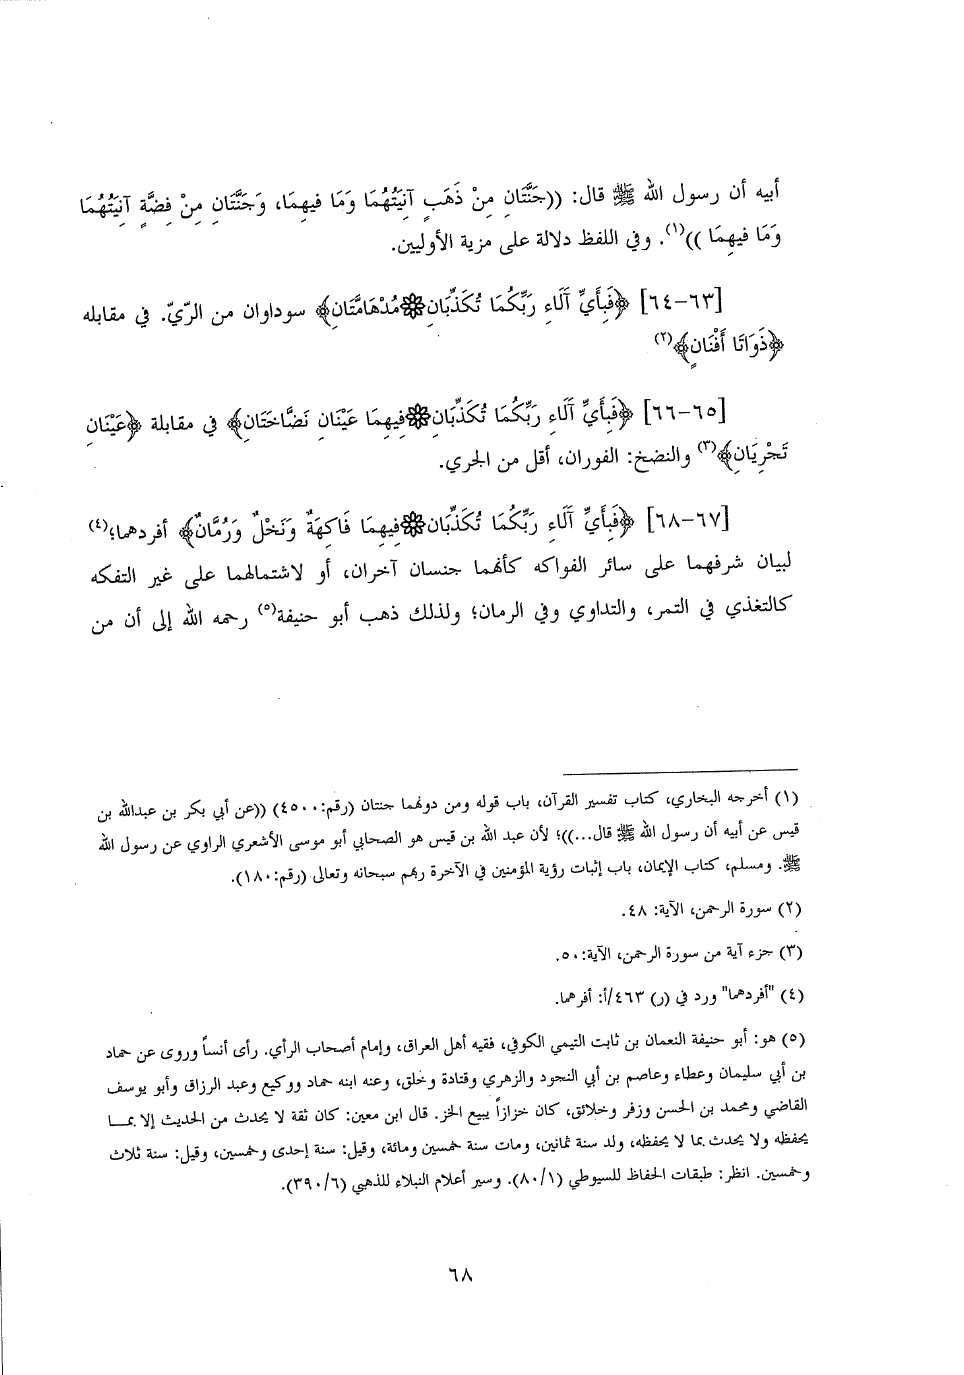 أبيه أن رسول الله ﷺ قال: ((جَنَّتَانِ مِنْ ذَهَبٍ آنِيَتُهُمَا وَمَا فيهِمَا، وَجَنَّتَانِ مِنْ فِضَّةٍ آنِيَتُهُمَا
وَمَا فِيهِمَا ))(١). وفي اللفظ دلالة على مزية الأوليين.
[٦٣-٦٤] ﴿فَبِأَيِّ آلَاءِ رَبِّكُمَا تُكَذِّبَانِ۞مُدْهَامَّتَانِ﴾ سوداوان من الرّيّ. في مقابله
﴿ذَوَاتَا أَفْنَانٍ﴾(٢)
[٦٥-٦٦] ﴿فَبِأَيِّ آلَاءِ رَبِّكُمَا تُكَذِّبَانِ۞فِيهِمَا عَيْنَانِ نَضَّاخَتَانِ﴾ في مقابلة ﴿عَيْنَانِ
تَجْرِيَانِ﴾(٣) والنضخ: الفوران، أقل من الجري.
[٦٧-٦٨] ﴿فَبِأَيِّ آلَاءِ رَبِّكُمَا تُكَذِّبَانِ۞فِيهِمَا فَاكِهَةٌ وَنَخْلٌ وَرُمَّانٌ﴾ أفردهما؛(٤)
لبيان شرفهما على سائر الفواكه كأنهما جنسان آخران، أو لاشتمالهما على غير التفكه
كالتغذي في التمر، والتداوي وفي الرمان؛ ولذلك ذهب أبو حنيفة(٥) رحمه الله إلى أن من
(١) أخرجه البخاري، كتاب تفسير القرآن، باب قوله ومن دونهما جنتان (رقم:٤٥٠٠) ((عن أبي بكر بن عبدالله بن
قيس عن أبيه أن رسول الله ﷺ قال...))؛ لأن عبد الله بن قيس هو الصحابي أبو موسى الأشعري الراوي عن رسول الله
ﷺ. ومسلم، كتاب الإيمان، باب إثبات رؤية المؤمنين في الآخرة ربهم سبحانه وتعالى (رقم:١٨٠).
(٢) سورة الرحمن، الآية: ٤٨.
(٣) جزء آية من سورة الرحمن، الآية:٥٠.
(٤) "أفردهما" ورد في (ر) ٤٦٣/أ: أفرهما.
(٥) هو: أبو حنيفة النعمان بن ثابت التيمي الكوفي، فقيه أهل العراق، وإمام أصحاب الرأي. رأى أنساً وروى عن حماد
بن أبي سليمان وعطاء وعاصم بن أبي النجود والزهري وقتادة وخلق، وعنه ابنه حماد ووكيع وعبد الرزاق وأبو يوسف
القاضي ومحمد بن الحسن وزفر وخلائق، كان خزازاً يبيع الخز. قال ابن معين: كان ثقة لا يحدث من الحديث إلا بمـــا
يحفظه ولا يحدث بما لا يحفظه، ولد سنة ثمانين، ومات سنة خمسين ومائة، وقيل: سنة إحدى وخمسين، وقيل: سنة ثلاث
وخمسين. انظر: طبقات الحفاظ للسيوطي (٨٠/١). وسير أعلام النبلاء للذهبي (٣٩٠/٦).
٦٨